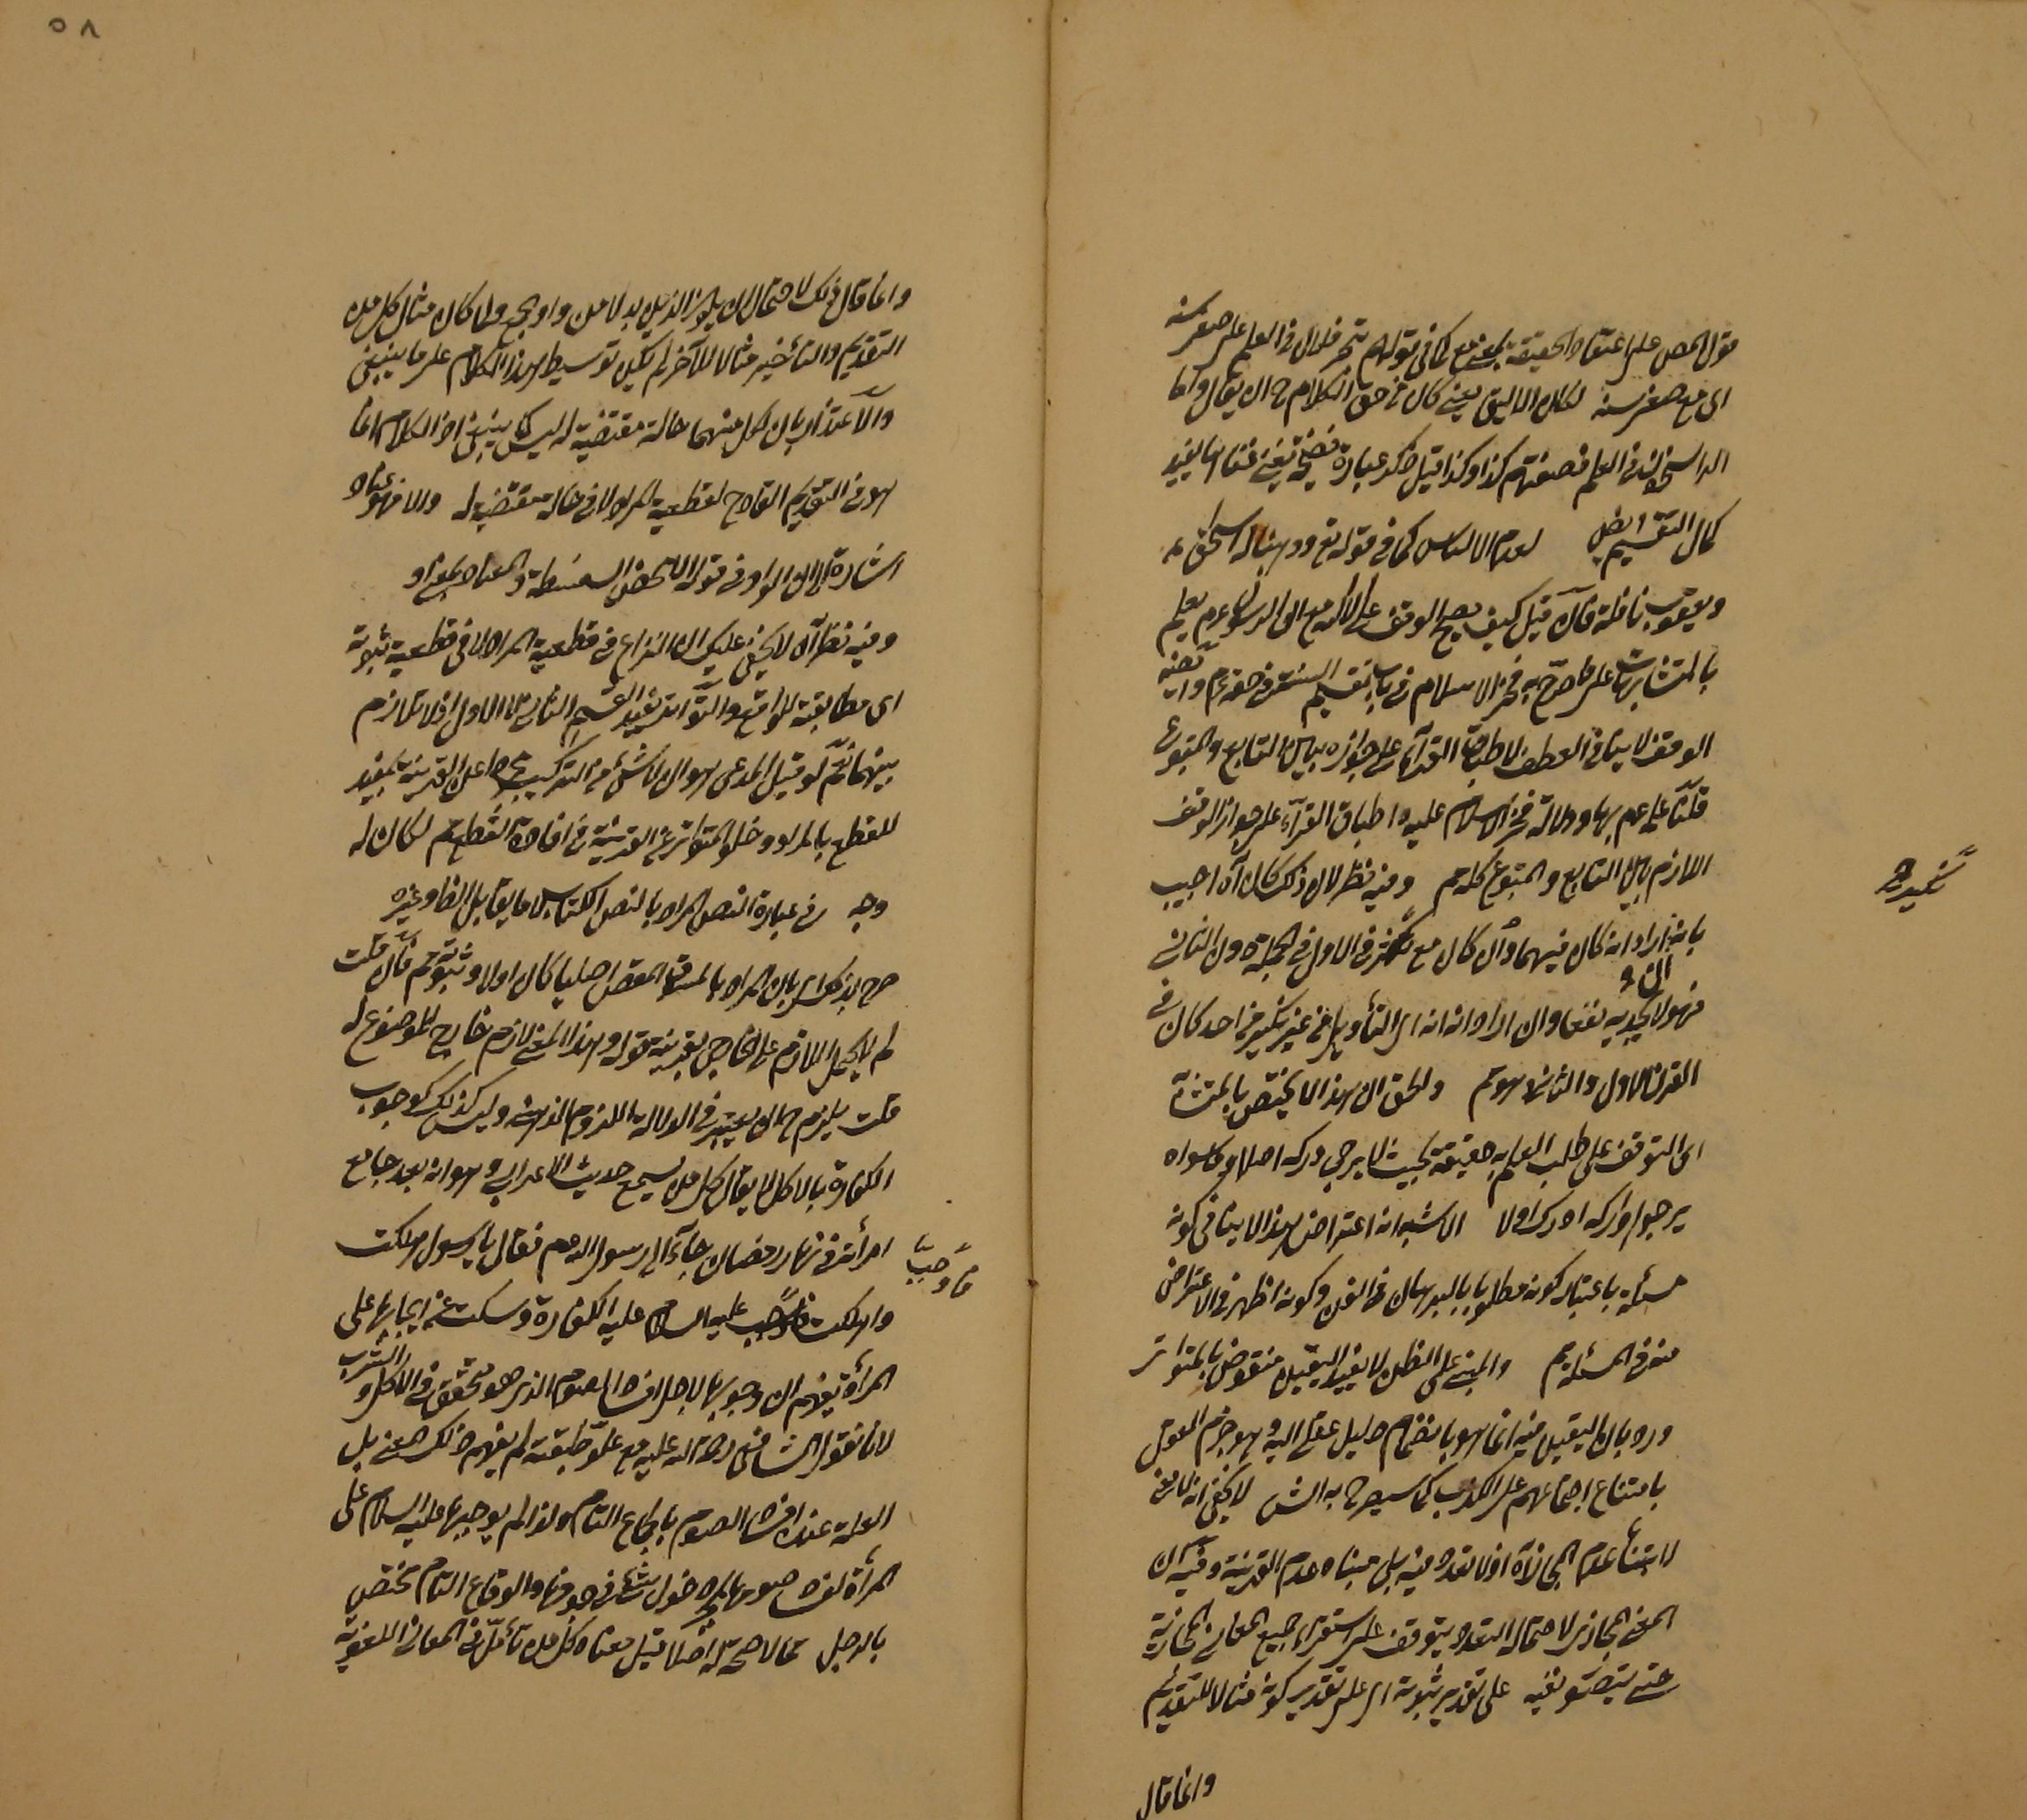 قول المص على اعتقاد الحقيقة بمعنى مع كما في قولهم تبحر فلان في العلم على صغر سنه
اى مع صغر سنه لكان الاليق يعنى كان من حق الكلام ح ان يقال واما
الراسخون في العلم فصفتهم كذا وكذا قيل ذكر عبارة
كمال التقسيم لعدم الالتباس كما في قوله تع ووهبنا له اسحق
ويعقوب نافلة فان قيل كيف يصح الوقف على الا الله مع ان الرسول عم يعلم
بالمتشابهات على ما صرح به فخر الاسلام في باب تقسيم السنة في حقه عم
الوقف لا ينافى العطف لاطباق القراء على جوازه بين التابع والمتبوع
قلنا على عدم دلالة فخر الاسلام عليه اطباق القراء على جواز الوقف
اللازم بين التابع والمتبوع كله وفيه نظر لان ذلك كان اه اجيب
بانه ان اراد انه كان فيهما وان كان مع تكثر في الاول في الجملة دون الثانى
فهو لا يجديه نفعا وان اراد انه اى التأويل في غير نكير في احد كان في
القرن الاول والثانى هو والحق ان هذا لا يختص بالمتشابه
اى التوقف على طلب العلم به حقيقة بحيث لا يرجى دركه اصلا وما سواه
يرجى دركه ادرك اولا الاشبه انه اعتراض هذا لا ينافى كونه
مسئلة باعتبار كونه مطلوبا بالبرهان في الفن وكونه اظهر في الاعتراض
منه في المسئلة والمبنى على الظن لا يفيد اليقين منقوض بالمتواتر
ورد بان اليقين فيه انما هو بانضمام دليل عقلى اليه وهو جزم العقل
بامتناع اجتماعهم على الكذب كما سيصرح به الش لا يخفى انه
لابتناء عدم المجاز اه اذ لا تعدد فيه بل مبناه عدم القرينة وفيه ان
المعنى المجازى لاحتماله التعدد يتوقف على استقراء جميع المعانى المجازية
حتى يتصور نفيه على تقدير ثبوته اى على تقدير كونه مثالا للتقديم
وانما قال
وانما قال ذلك لاحتمال ان يكون الذين بدلا من واو ولما كان مثال كل من
التقديم والتأخير مثالا للآخر لم يكن توسيط هذا الكلام على ما ينبغى
والاعتذار بان لكل منهما حالة مقتضية له ليس كما ينبغى اذ الكلام انما
هو في التقديم القادح لقطعية المراد لا في حالة مقتضية له والا فهو عناد
اشارة الى ان الواو في قوله لان بعض السفسطة والعناد بمعنى او
وفيه نظر اه لا يخفى عليك ان النزاع في قطعية المراد لا في قطعية ثبوته
اى مطابقته للواقع والتواتر يفيد القسم الثانى لا الاول اذ لا تلازم
بينهما نعم لو قيل المدعى هو ان لا شئ من التركيب مجردا عن القرينة بمفيد
للقطع بالمراد وخلو المتواتر عن القرينة في افادة القطع لكان له
وجه في عبارة النص المراد بالنص الكتاب لا ما يقابل الظاهر وغيره
صرح بذلك اى بان المراد بالمسوق له المقصود اصليا كان اولا وثبوته فان قلت
لم لا يحمل اللازم على الخارجى بقرينة قوله وهذا المعنى لازم خارج للموضوع له
قلت يلزم ح ان يعتبر في الدلالة اللزوم الذهنى وليس كذلك كوجوب
الكفارة بالاكل لا يقال كل من يسمع حديث الاعرابى وهو انه بعد جامع
امرأته في نهار رمضان جاء الى رسول الله عم فقال يا رسول هلكت
واهلكت فاوجب عليه السلام عليه الكفارة وسكت عن ايجابها على
فاوجب
المرأة يفهم ان وجوبها لاجل افساد الصوم الذى هو متحقق في الاكل والشرب
لانا نقول الشافعى رحمة الله عليه مع علو طبقته لم يفهم ذلك المعنى بل
العلة عنده افساد الصوم بالجماع التام ولذا لم يوجبها عليه السلام على
المرأة لفساد صومها بمجرد دخول شئ في جوفها والوقاع التام مختص
بالرجل مما لا صحة له اصلا قيل معناه كل من تأمل في المعانى اللغوية
٥٨